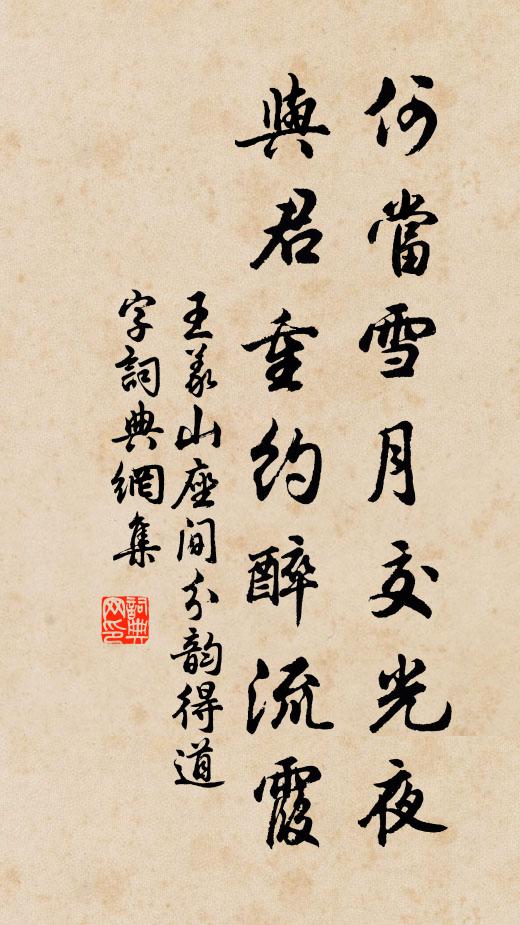 何當雪月交光夜
與君重約醉流霞
王義山座間分韵得道
字詞典網集
詞典網印